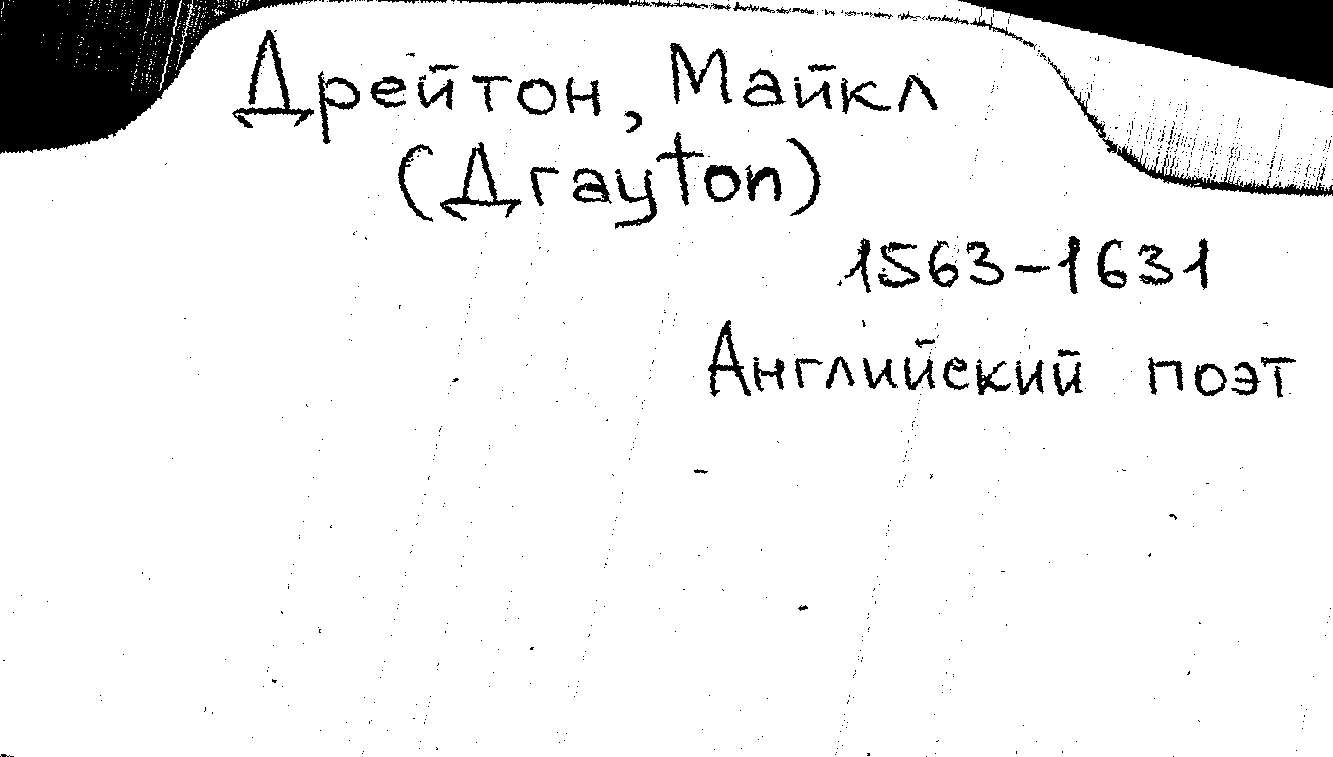 Дрейтон, Майкл
(Дrayton)
1563-1631
Английский поэт